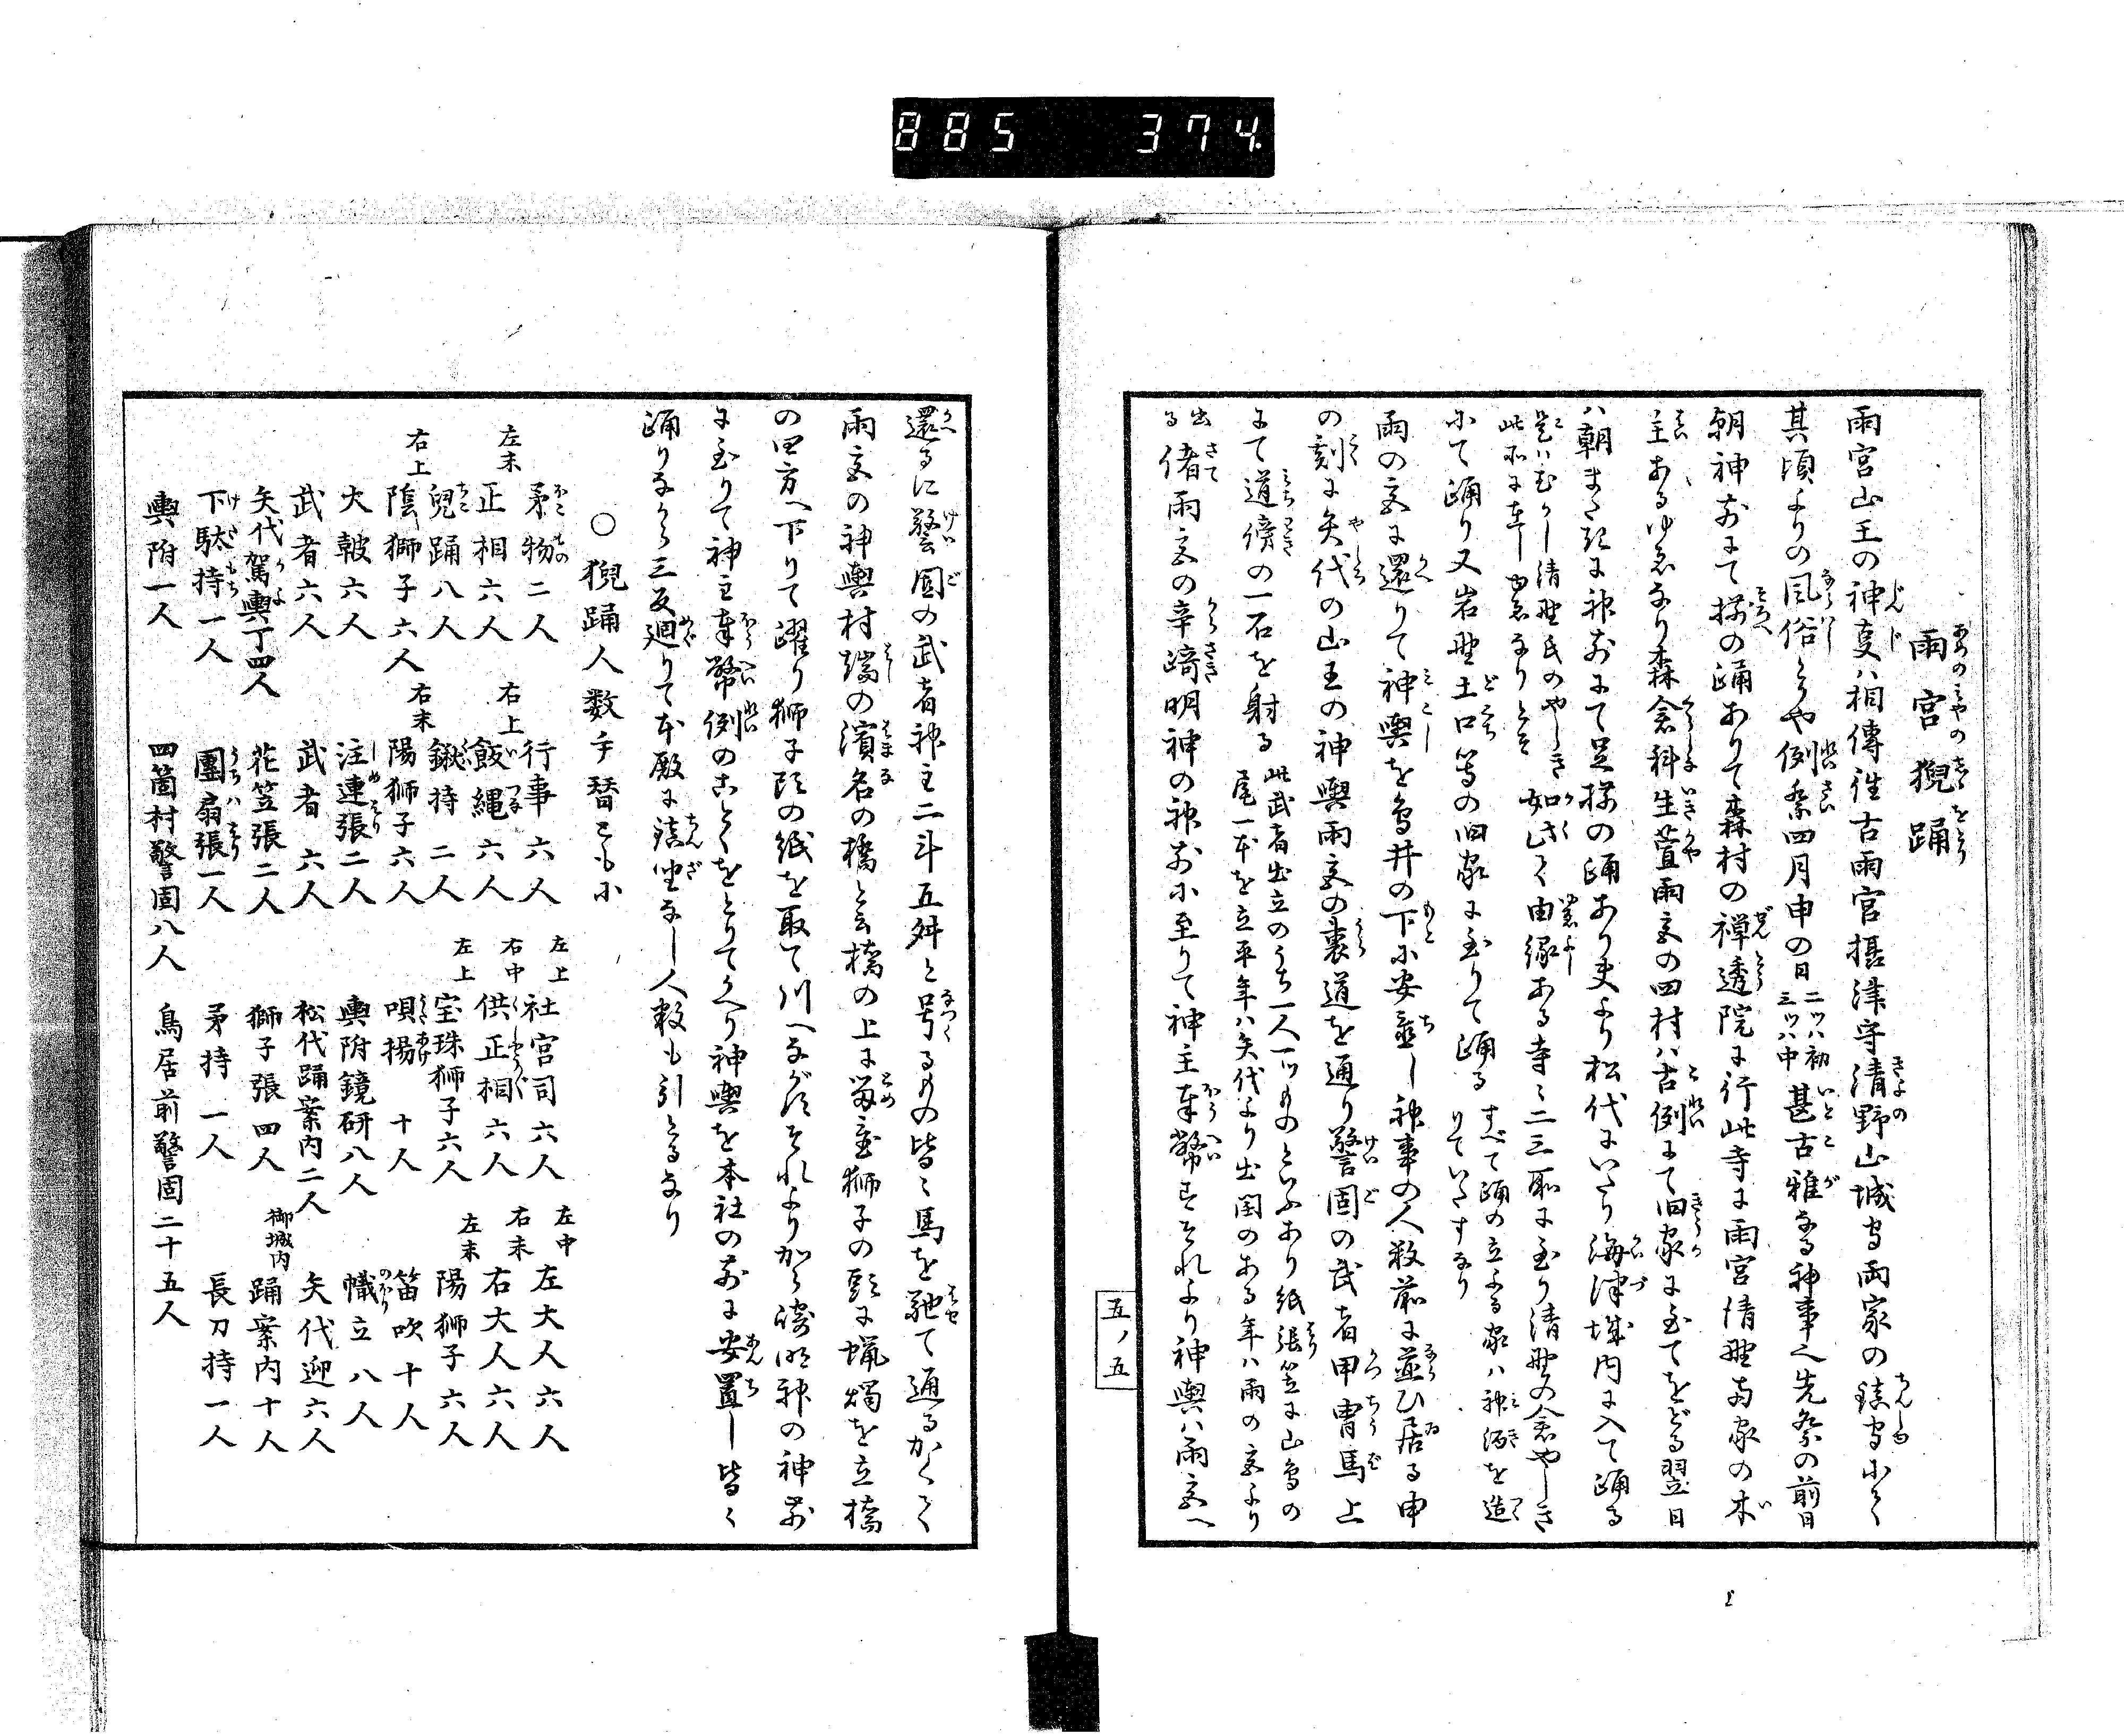 885 374.
雨宮猊踊
雨宮山王の神事ハ相傳往古雨宮摂津守清野山城守両家の鎮守にて
其頃よりの風俗とかや例祭四月申の日二ツハ初三ツハ中甚古雅なる神事也先祭の前日
朝神前にて揃の踊ありて森村の禅透院に行此寺に雨宮清野両家の木
主あるゆゑなり森倉科生萱雨宮の四村ハ古例にて旧家に至てをどる翌日
ハ朝まだきに神前にて足揃の踊あり夫より松代にいたり海津城内に入て踊る
是ハむかし清野氏のやしき此所に在しゆゑなりとぞ如此く由縁ある寺々二三所に至り清野の倉やしき
にて踊り又岩野土口等の旧家に至りて踊るすべて踊の立よる家ハ神酒を造りていだすなり
雨の宮に還りて神輿を鳥井の下に安置し神事の人数前に並ひ居る申
の刻に矢代の山王の神輿雨宮の裏道を通り警固の武者甲冑馬上
にて道傍の一石を射る此武者出立のうち一人一ツものといふあり紙張笠に山鳥の尾一本を立平年ハ矢代より出閏のある年ハ雨の宮より
出る偖雨宮の辛﨑明神の神前に至りて神主奉幣をそれより神輿ハ雨宮へ
五ノ五
還るに警固の武者神主二斗五舛と号るもの皆々馬を馳て通るかくて
雨宮の神輿村端の濱名の橋と云橋の上に留置獅子の頭に蝋燭を立橋
の四方へ下りて躍り獅子頭の紙を取て川へながすそれより唐崎明神の神前
に至りて神主奉幣例のごとくをとりてかへり神輿を本社の前に安置し皆々
踊りながら三反廻りて本殿に鎮坐なし人数も引とるなり
○猊踊人数手替ともに
矛物二人 行事六人 左上社宮司六人 左中左大人六人
左末正相六人 右上飯縄六人 右中供正相六人 右末右大人六人
兒踊八人 鍬持二人 左上宝珠獅子六人 左末陽獅子六人
右上陰獅子六人 右末陽獅子六人 唄揚十人 笛吹十人
大皷六人 注連張二人 輿附鏡研八人 幟立八人
武者六人 武者六人 松代踊案内二人 矢代迎六人
矢代駕輿丁四人 花笠張二人 獅子張四人 御城内踊案内十人
下駄持一人 團扇張一人 矛持一人 長刀持一人
輿附一人 四箇村警固八人 鳥居前警固二十五人